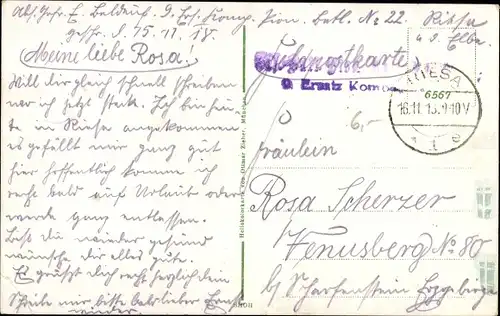 Abs. Gefr. E. Balduin 9. Ers. Komp. Pion. Batl. No 22. Riesa
a. d. Elbe.
geschr. d. 15. 11. 18.
Meine liebe Rosa!
Will dir gleich schnell schreiben
wo ich jetzt stecke. Ich bin heu-
te in Riesa angekommen
es gefällt mir ganz gut
hier hoffentlich komme ich
recht bald auf Urlaub oder
werde ganz entlassen.
Bist du wieder gesund
wünsche dir alles gute.
Es grüßt dich recht herzlich dein
Schreibe mir bitte bald lieber Ernst
wieder
Feldpostkarte
Ersatz Komp
RIESA
6567
16.11.18. 9-10V
6,-
Fräulein
Rosa Scherzer
Venusberg No 80
b/ Scharfenstein Erzgebirge
Heliokolorkarte von Ottmar Zieher, München